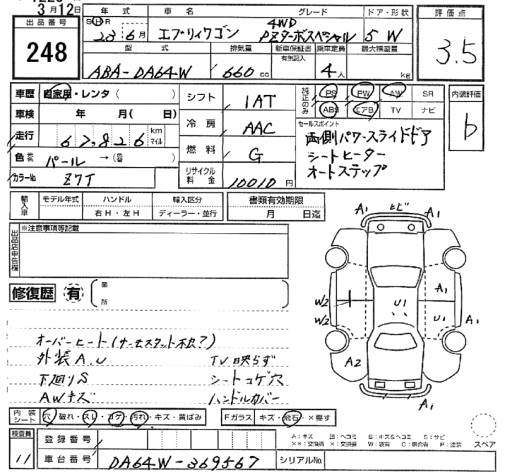 3月12日
出品番号
248
年式 車名 グレード ドア・形状
23年6月 エブリィワゴン 4WD PZターボスペシャル 5W
型式 排気量 新車保証書 有無記入 乗車定員 最大積載量
ABA-DA64W 660cc 4人 kg
評価点
3.5
車歴 自家用・レンタ( )
車検 年 月( 日)
走行 67,826 km マイル
色 パール →( 色)
カラーNo Z7T
シフト 1AT
冷房 AAC
燃料 G
リサイクル料金 10010円
純正品のみ
PS PW AW SR
ABS エアB TV ナビ
セールスポイント
両側パワースライドドア
シートヒーター
オートステップ
内装評価
b
輸入車 モデル年式 ハンドル 右H・左H 輸入区分 ディーラー・並行
書類有効期限
月 日迄
出品店申告欄 ※注意事項等記載
修復歴 有 箇所
オーバーヒート(サーモスタット不良?)
外装A.U TV映らず
下廻りS シートコゲ穴
AWキズ ハンドルカバー
A1 ヒビ A1
A1
W2
W2
U1
U1
A1
A2
A1
A1
内装シート 穴・破れ・スレ・コゲ・汚れ・キズ・黄ばみ
Fガラス キズ・飛石・×要す
スペア
A:キズ
検査員
11
登録番号
車台番号 DA64W-369567
シリアルNo.